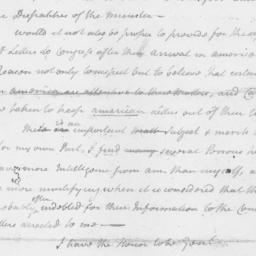 the Dispatches of the Minister—
would it not also be proper to provide for the
Letters to Congress after their arrival in america
Reason not only to suspect but to believe that certain
in america are attentive to
be taken to keep american Letters out of their
This is an important Subject & merits
for my own Part, I find several Persons
have more Intelligence from am: than myself,
more mortifying when it is considered that they
probably often indebted for their Information to the
Letters directed to me—
I have the Honor to be your